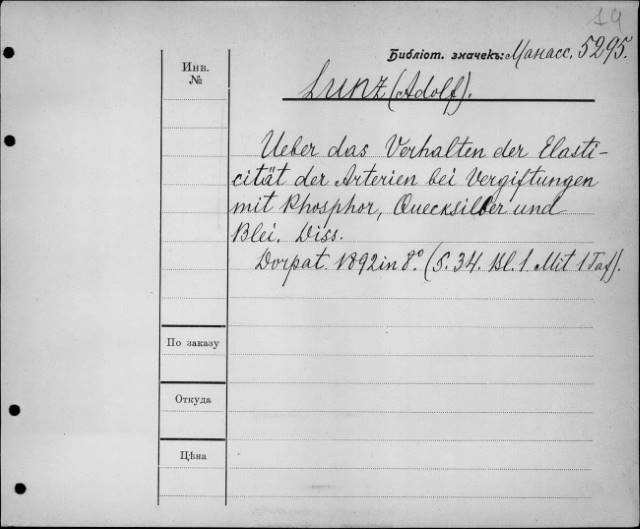 19
Библiот. значекъ: Манасс. 5295.
Инв.
№
Lunz (Adolf).
Ueber das Verhalten der Elasti-
cität der Arterien bei Vergiftungen
mit Phosphor, Quecksilber und
Blei. Diss.
Dorpat. 1892 in 8°. (S. 34. Bl. 1. Mit 1 Taf).
По заказу
Откуда
Цѣна